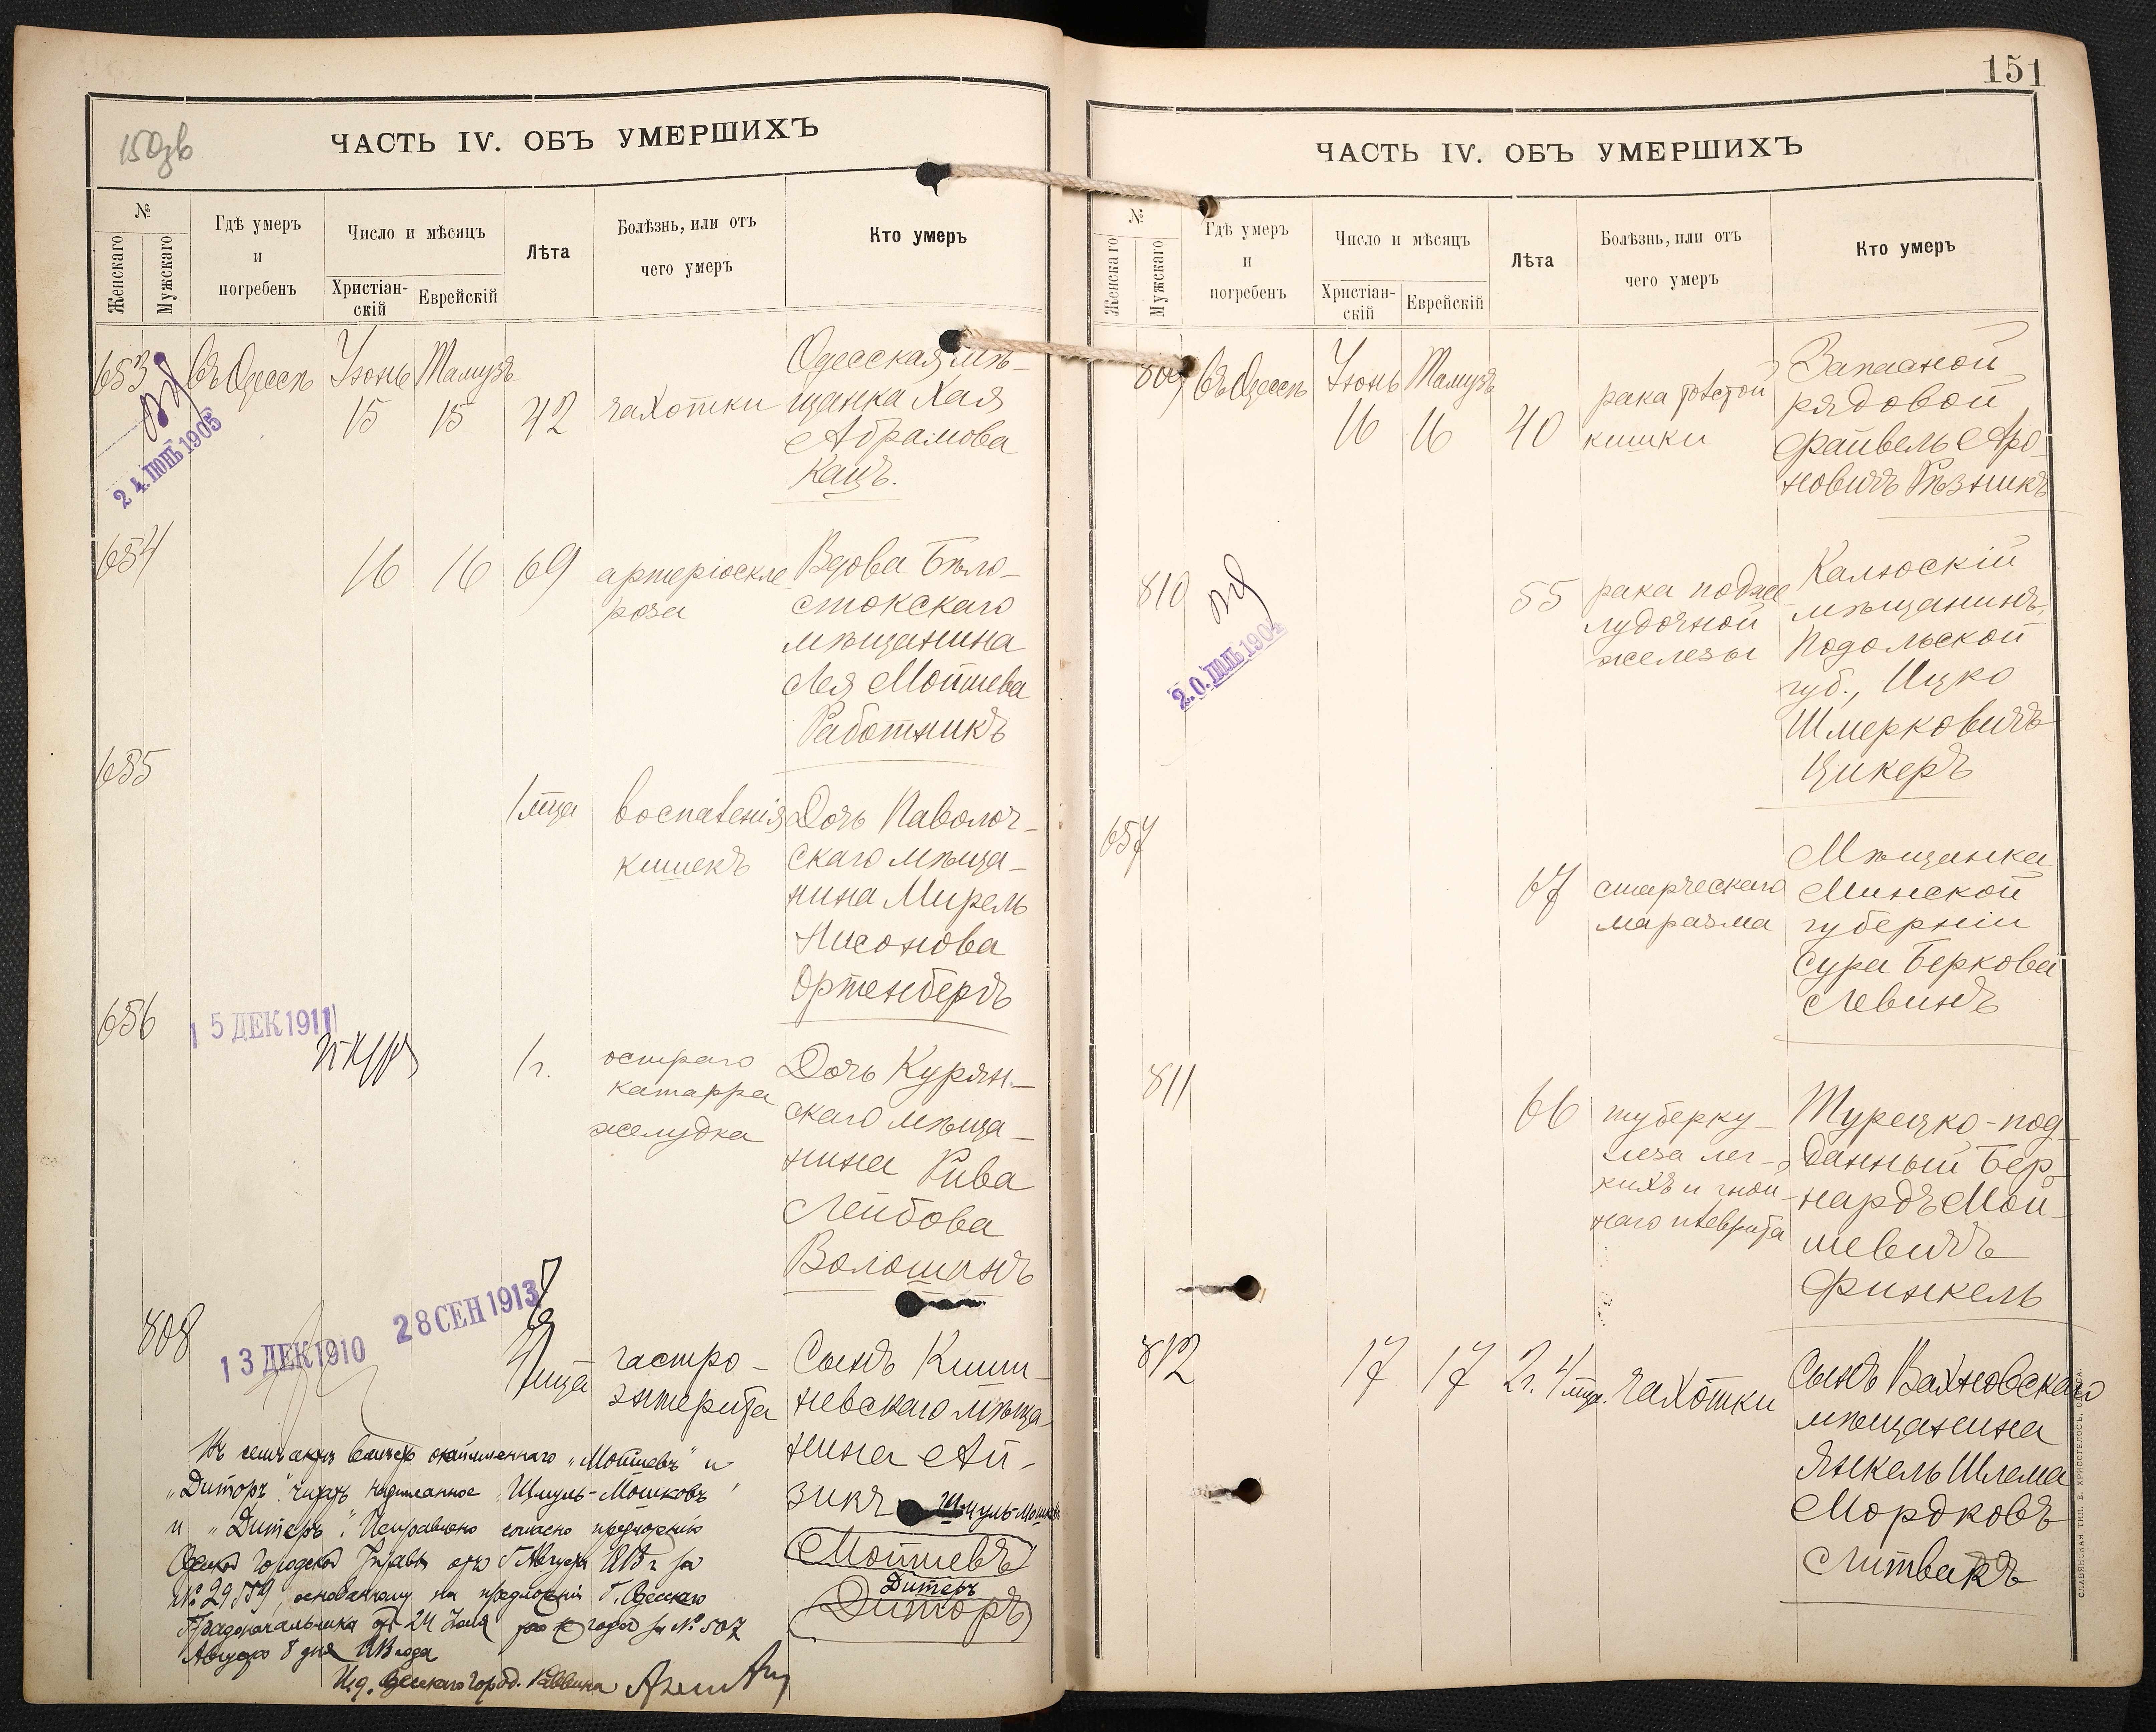 ЧАСТЬ IV. ОБЪ УМЕРШИХЪ
№
Женскаго
Мужскаго
Гдѣ умеръ
и
погребенъ
Число и мѣсяцъ
Христіан-
скій
Еврейскій
Лѣта
Болѣзнь, или отъ
чего умеръ
Кто умеръ
653
24. ІЮНЬ 1905
Въ Одессѣ
Іюнь
15
Тамузъ
15
42
чахотки
Одесская мѣ-
щанка Хая
Абрамова
Кацъ.
654
16
16
69
артеріоскле
роза
Вдова Бѣло-
стокскаго
мѣщанина
Лея Мойшева
Работникъ
655
1 мца
воспаленія
кишекъ
Дочь Паволоч-
скаго мѣща-
нина Мирель
Нисонова
Ортенбергъ
656
15 ДЕК 1911
1 г.
остраго
катарра
желудка
Дочь Курян-
скаго мѣща-
нина Рива
Лейбова
Волошинъ
808
13 ДЕК 1910
28 СЕН 1913
мца
гастро-
энтерита
Сынъ Киши-
невскаго мѣща-
нина Ай-
зикъ Шмуль-Мошковъ
Мойшевъ
Дитеръ
Диторъ
Въ семъ актѣ вмѣсто „Мойшевъ" и
„Диторъ" читать надписанное „Шмуль-Мошковъ"
и „Дитеръ". Исправлено согласно предложенію
Одесской Городской Управы отъ Августа за
№ основанному на предложеніи Г. Одесскаго
Градоначальника отъ 24 Іюля года за № 507
Августа 8 дня года
И.д. Одесскаго Город. Раввина
151
ЧАСТЬ IV. ОБЪ УМЕРШИХЪ
№
Женскаго
Мужскаго
Гдѣ умеръ
и
погребенъ
Число и мѣсяцъ
Христіан-
скій
Еврейскій
Лѣта
Болѣзнь, или отъ
чего умеръ
Кто умеръ
809
Въ Одессѣ
Іюнь
16
Тамузъ
16
40
рака толстой
кишки
Запасной
рядовой
Файвель Аро-
новичъ Рѣзникъ
810
2.0. ІЮЛЬ 1904
55
рака подже
лудочной
железы
Калюскій
мѣщанинъ,
Подольской
губ., Ицко
Шмерковичъ
Цикеръ
657
67
старческаго
маразма
Мѣщанка
Минской
губерніи
Сура Беркова
Левинъ
811
66
туберку-
леза лег-
кихъ и гной-
наго плеврита
Турецко-под-
данный Бер-
нардъ Мой-
шевичъ
Финкель
812
17
17
2 г. 4 мца.
чахотки
Сынъ Вахновскаго
мѣщанина
Янкель Шлема
Мордковъ
Литвакъ
СЛАВЯНСКАЯ ТИП. Е. ХРИСОГЕЛОСЪ, ОДЕССА.